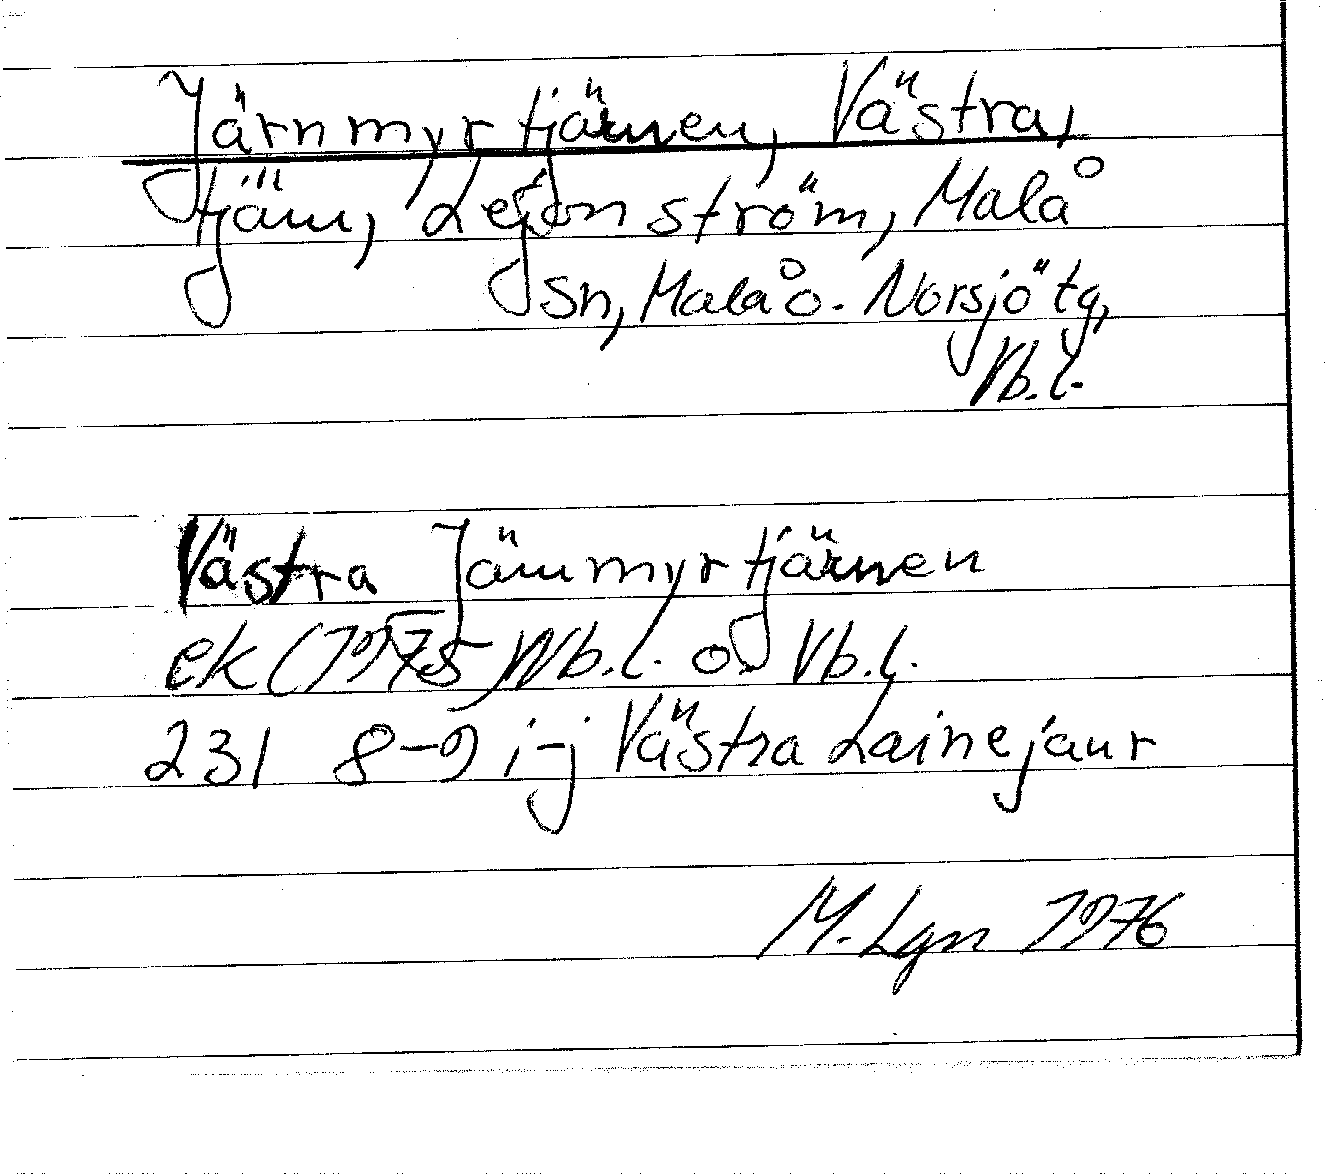 Järnmyrtjärnen, Västra,
tjärn, Lejonström, Malå
sn, Malå o. Norsjö tg,
Vb.l.
Västra Järnmyrtjärnen
ek (1975) Nb.l. o. Vb.l.
231 8-9 i-j Västra Lainejaur
M. Lgn 1976